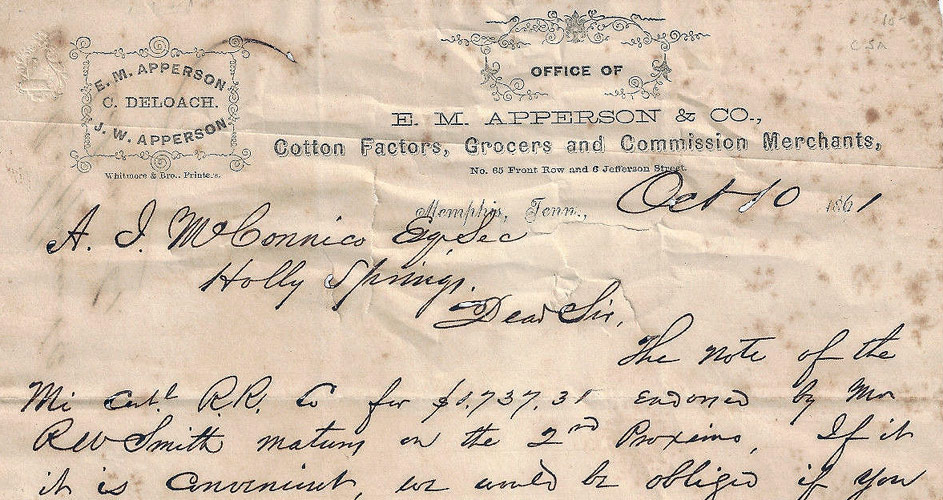 E. M. APPERSON,
C. DELOACH.
J. W. APPERSON,
Whitmore & Bro., Printers.
OFFICE OF
E. M. APPERSON & CO.,
Cotton Factors, Grocers and Commission Merchants,
No. 65 Front Row and 6 Jefferson Street.
Memphis, Tenn., Oct 10 1861
A. J. McConnico Esq, Sec
Holly Springs.
Dear Sir,
The note of the
Mi Centl. R.R. Co for endorsed by Mr
R W Smith matures on the 2nd Proximo, If it
it is convenient, we would be obliged if you
CSA